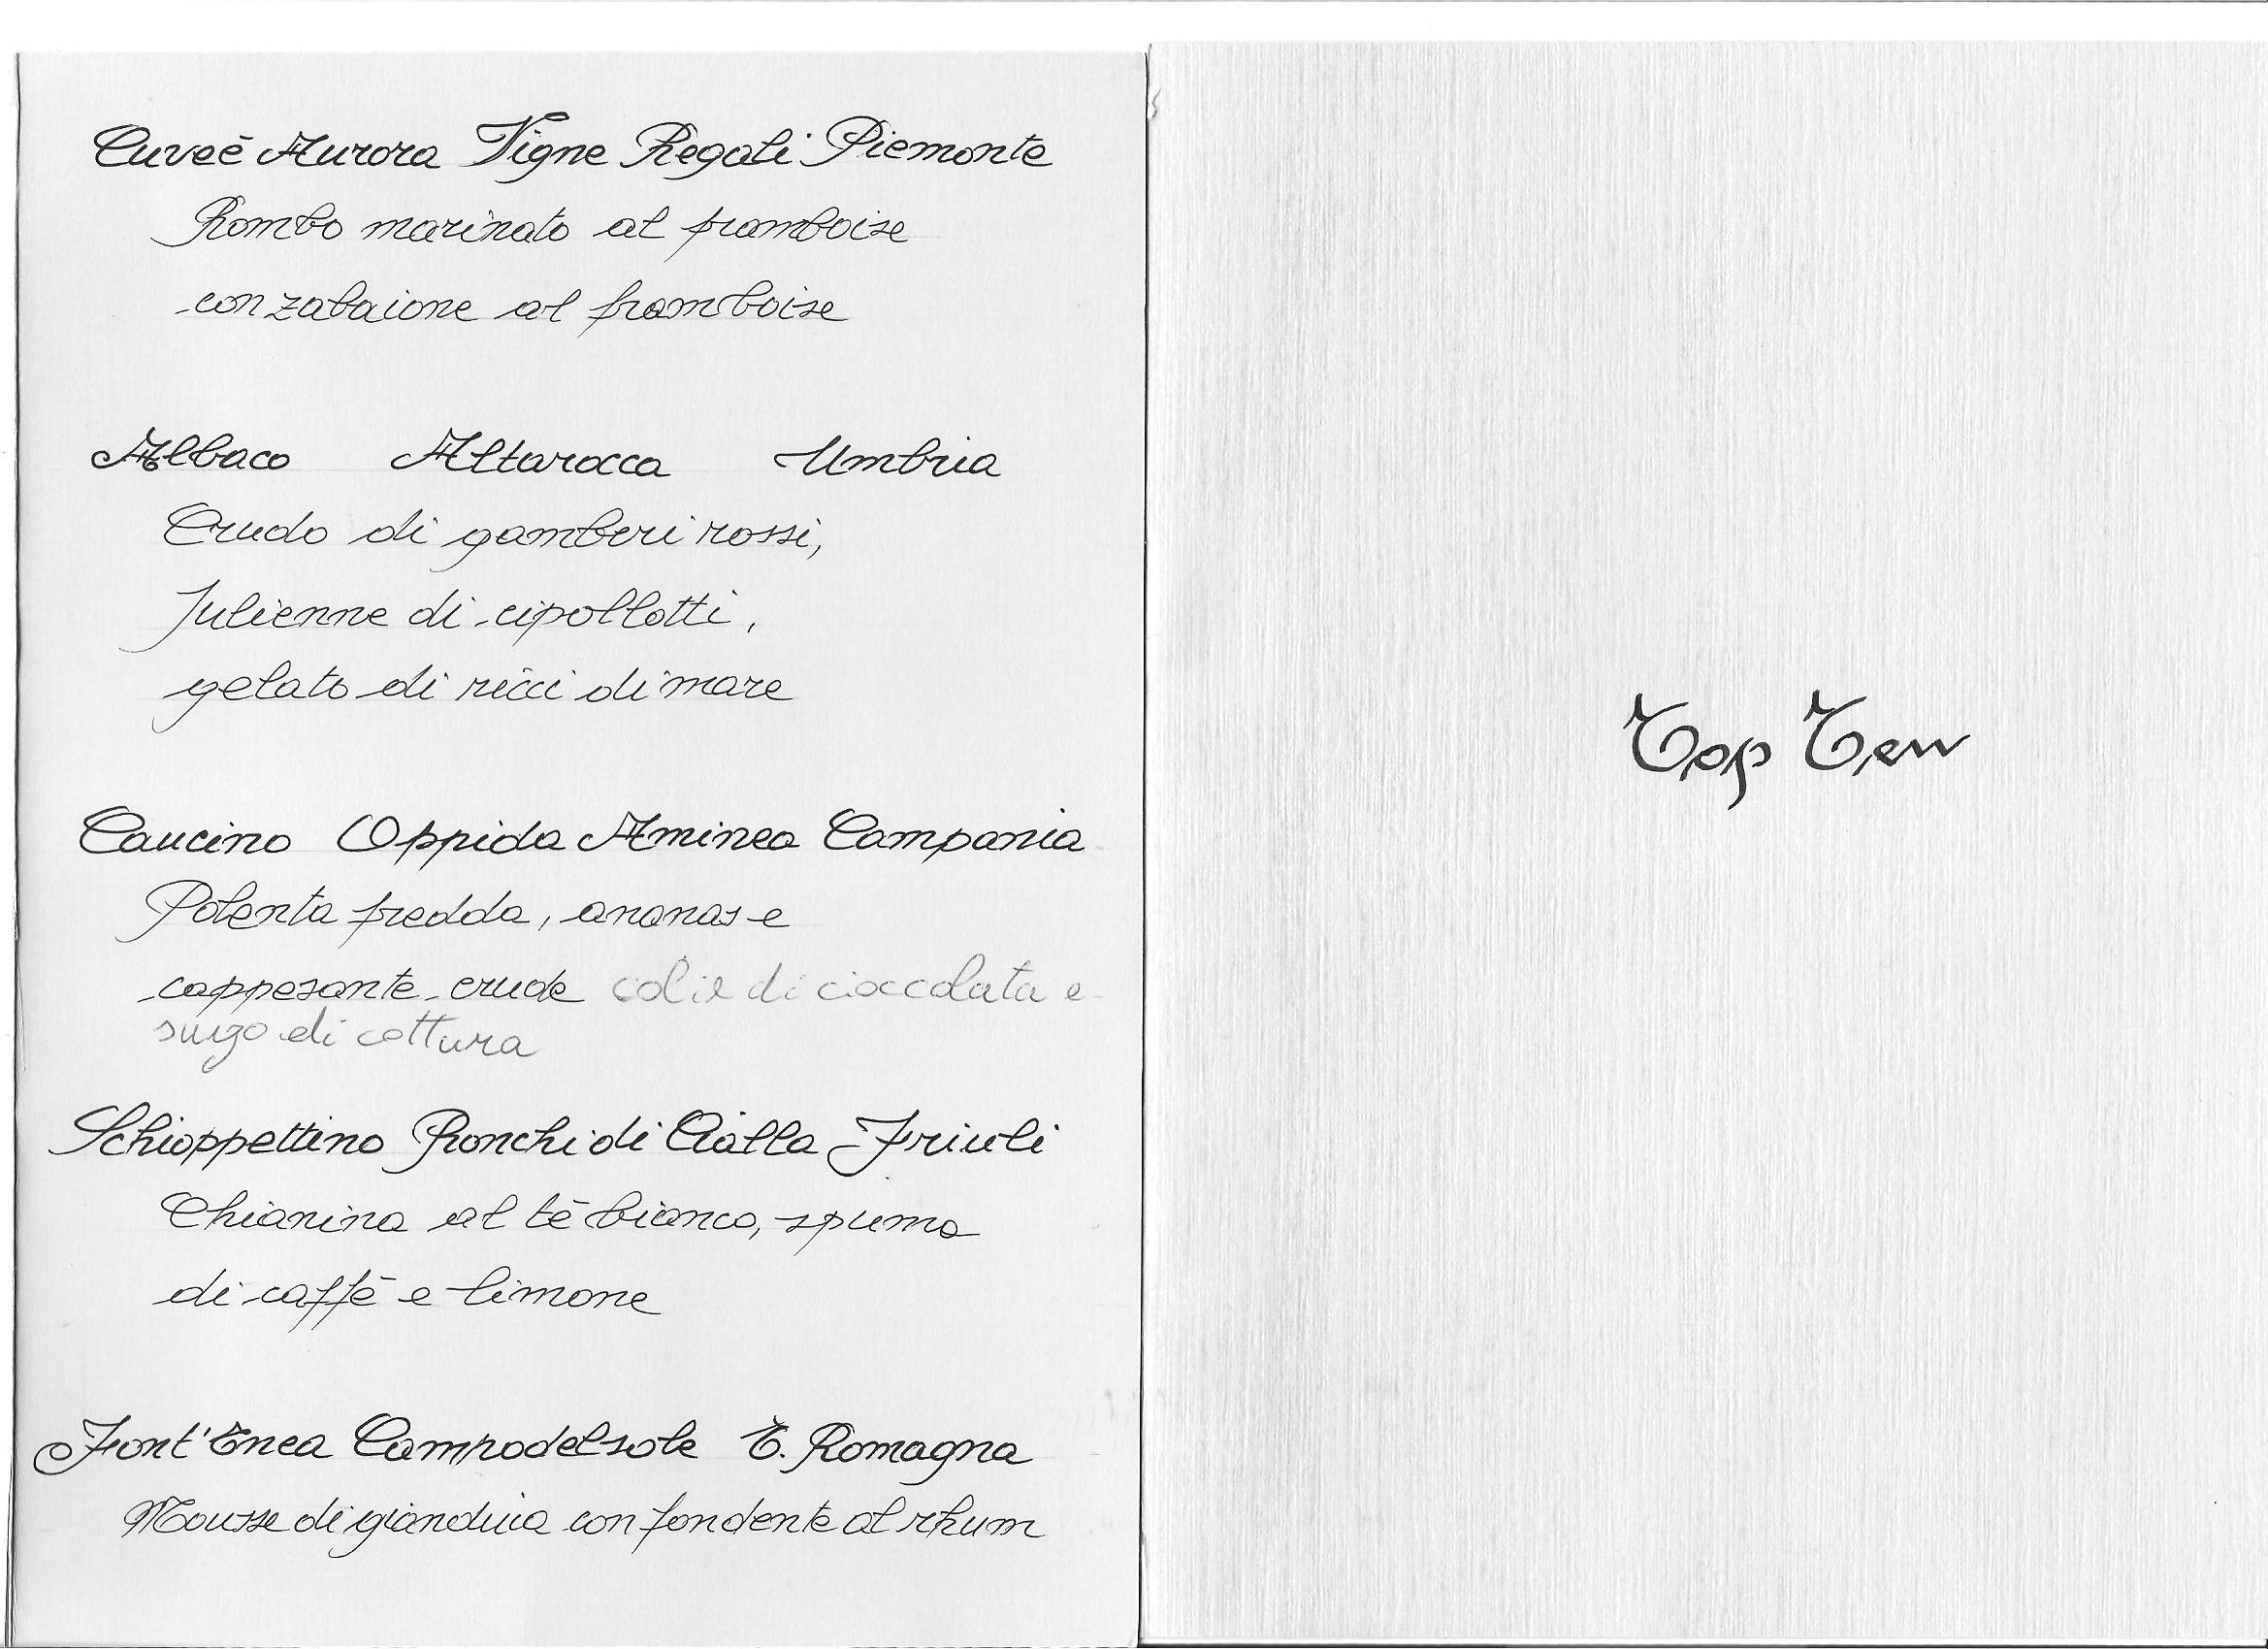 Cuveè Aurora Vigne Regali Piemonte
Rombo marinato al framboise
con zabaione al framboise
Albaco Altarocca Umbria
Crudo di gamberi rossi,
Julienne di cipollotti,
gelato di ricci di mare
Caucino Oppida Aminea Campania
Polenta fredda, ananas e
cappesante crude di cioccolata e
sugo di cottura
Schioppettino Ronchi di Cialla Friuli
Chianina al tè bianco, spuma
di caffè e limone
Font'Enea Campodelsole E. Romagna
Mousse di gianduia con fondente al rhum
Top Ten